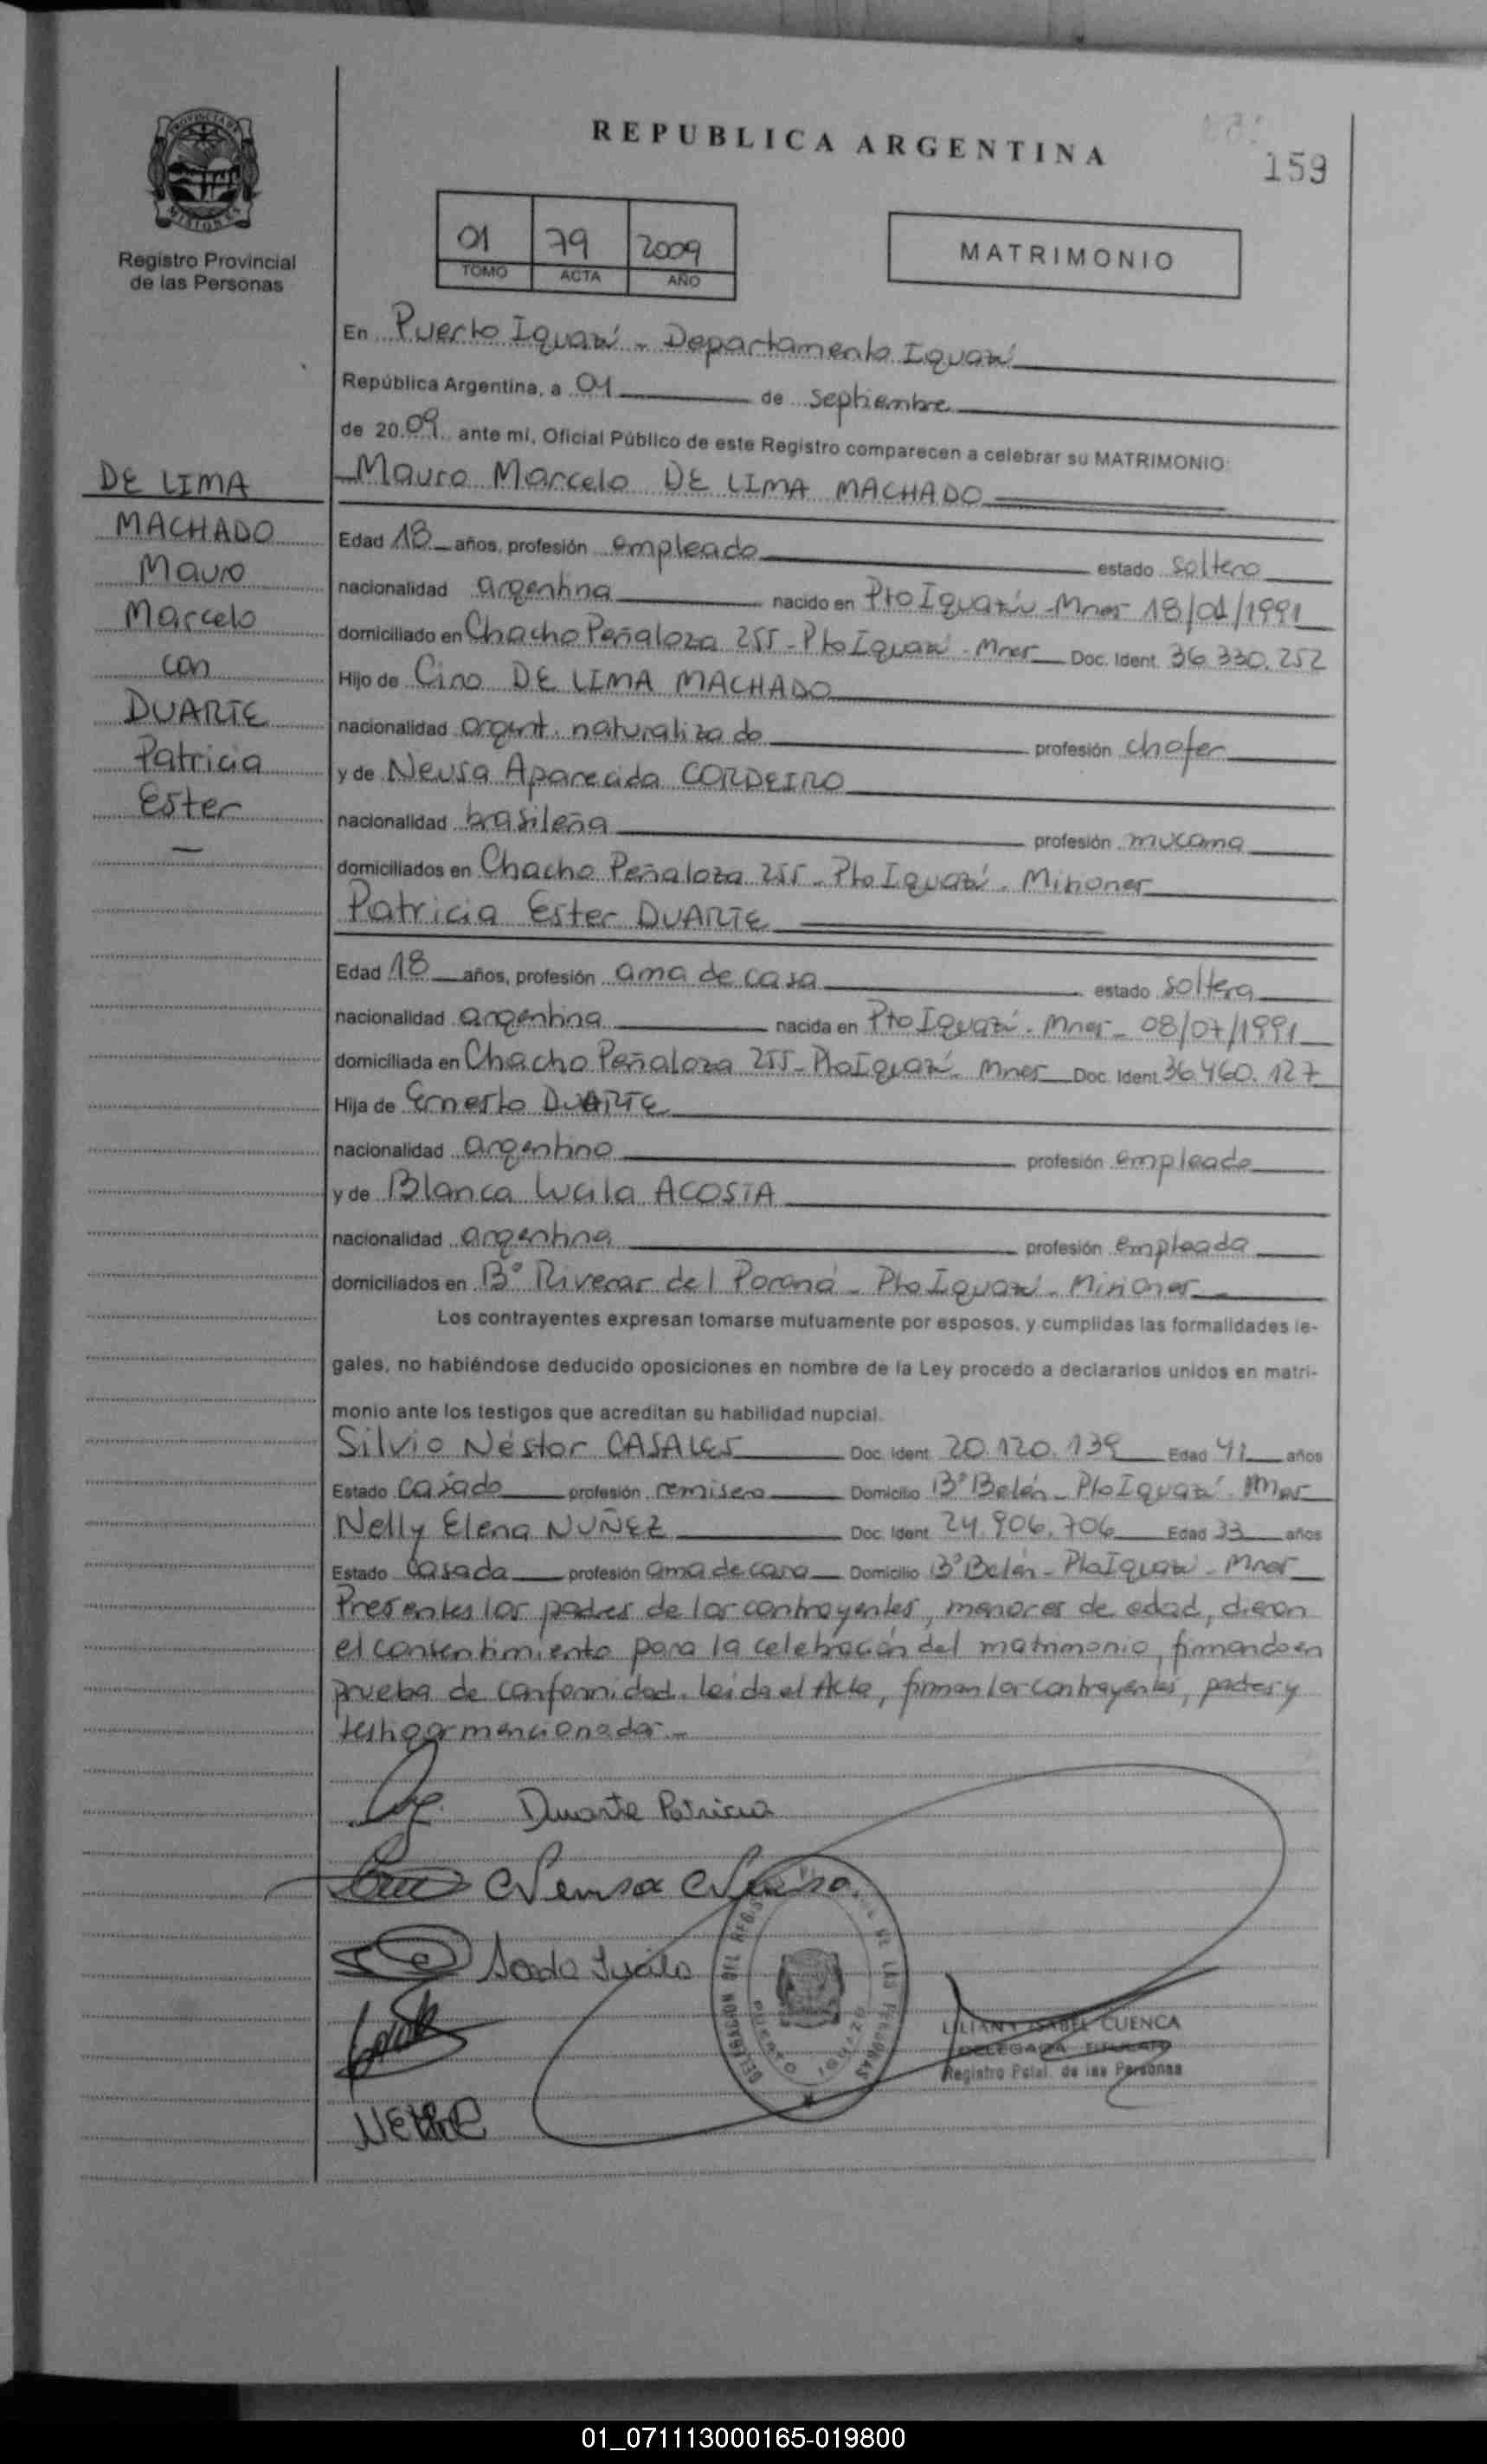 PROVINCIA DE
MISIONES
Registro Provincial
de las Personas
REPUBLICA ARGENTINA
159
01 79 2009
TOMO ACTA AÑO
MATRIMONIO
En Puerto Iguazú - Departamento Iguazú
República Argentina, a 01 de septiembre
de 2009 ante mí, Oficial Público de este Registro comparecen a celebrar su MATRIMONIO:
DE LIMA
MACHADO
Mauro
Marcelo
con
DUARTE
Patricia
Ester
Mauro Marcelo DE LIMA MACHADO
Edad 18 años, profesión empleado estado soltero
nacionalidad argentina nacido en Pto Iguazú - Mnes 18/01/1991
domiciliado en Chacho Peñaloza 255 - Pto Iguazú - Mnes Doc. Ident. 36.330.252
Hijo de Ciro DE LIMA MACHADO
nacionalidad argent. naturalizado profesión chofer
y de Neusa Aparecida CORDEIRO
nacionalidad brasileña profesión mucama
domiciliados en Chacho Peñaloza 255 - Pto Iguazú - Misiones
Patricia Ester DUARTE
Edad 18 años, profesión ama de casa estado soltera
nacionalidad argentina nacida en Pto Iguazú - Mnes - 08/07/1991
domiciliada en Chacho Peñaloza 255 - Pto Iguazú - Mnes Doc. Ident. 36.460.127
Hija de Ernesto DUARTE
nacionalidad argentino profesión empleado
y de Blanca Lucila ACOSTA
nacionalidad argentina profesión empleada
domiciliados en Bº Riveras del Paraná - Pto Iguazú - Misiones
Los contrayentes expresan tomarse mutuamente por esposos, y cumplidas las formalidades le-
gales, no habiéndose deducido oposiciones en nombre de la Ley procedo a declararlos unidos en matri-
monio ante los testigos que acreditan su habilidad nupcial.
Silvio Néstor CASALES Doc. Ident. 20.120.139 Edad 41 años
Estado casado profesión remisero Domicilio Bº Belén - Pto Iguazú - Mnes
Nelly Elena NUÑEZ Doc. Ident. 24.906.706 Edad 33 años
Estado casada profesión ama de casa Domicilio Bº Belén - Pto Iguazú - Mnes
Presentes los padres de los contrayentes, menores de edad, dieron
el consentimiento para la celebración del matrimonio, firmando en
prueba de conformidad. Leída el Acta, firman los contrayentes, padres y
testigos mencionados.-
Duarte Patricia
Neusa
DELEGACION DEL REGISTRO DE LAS PERSONAS
PUERTO IGUAZU
LILIANA ISABEL CUENCA
DELEGADA TITULAR
Registro Pcial. de las Personas
01_071113000165-019800